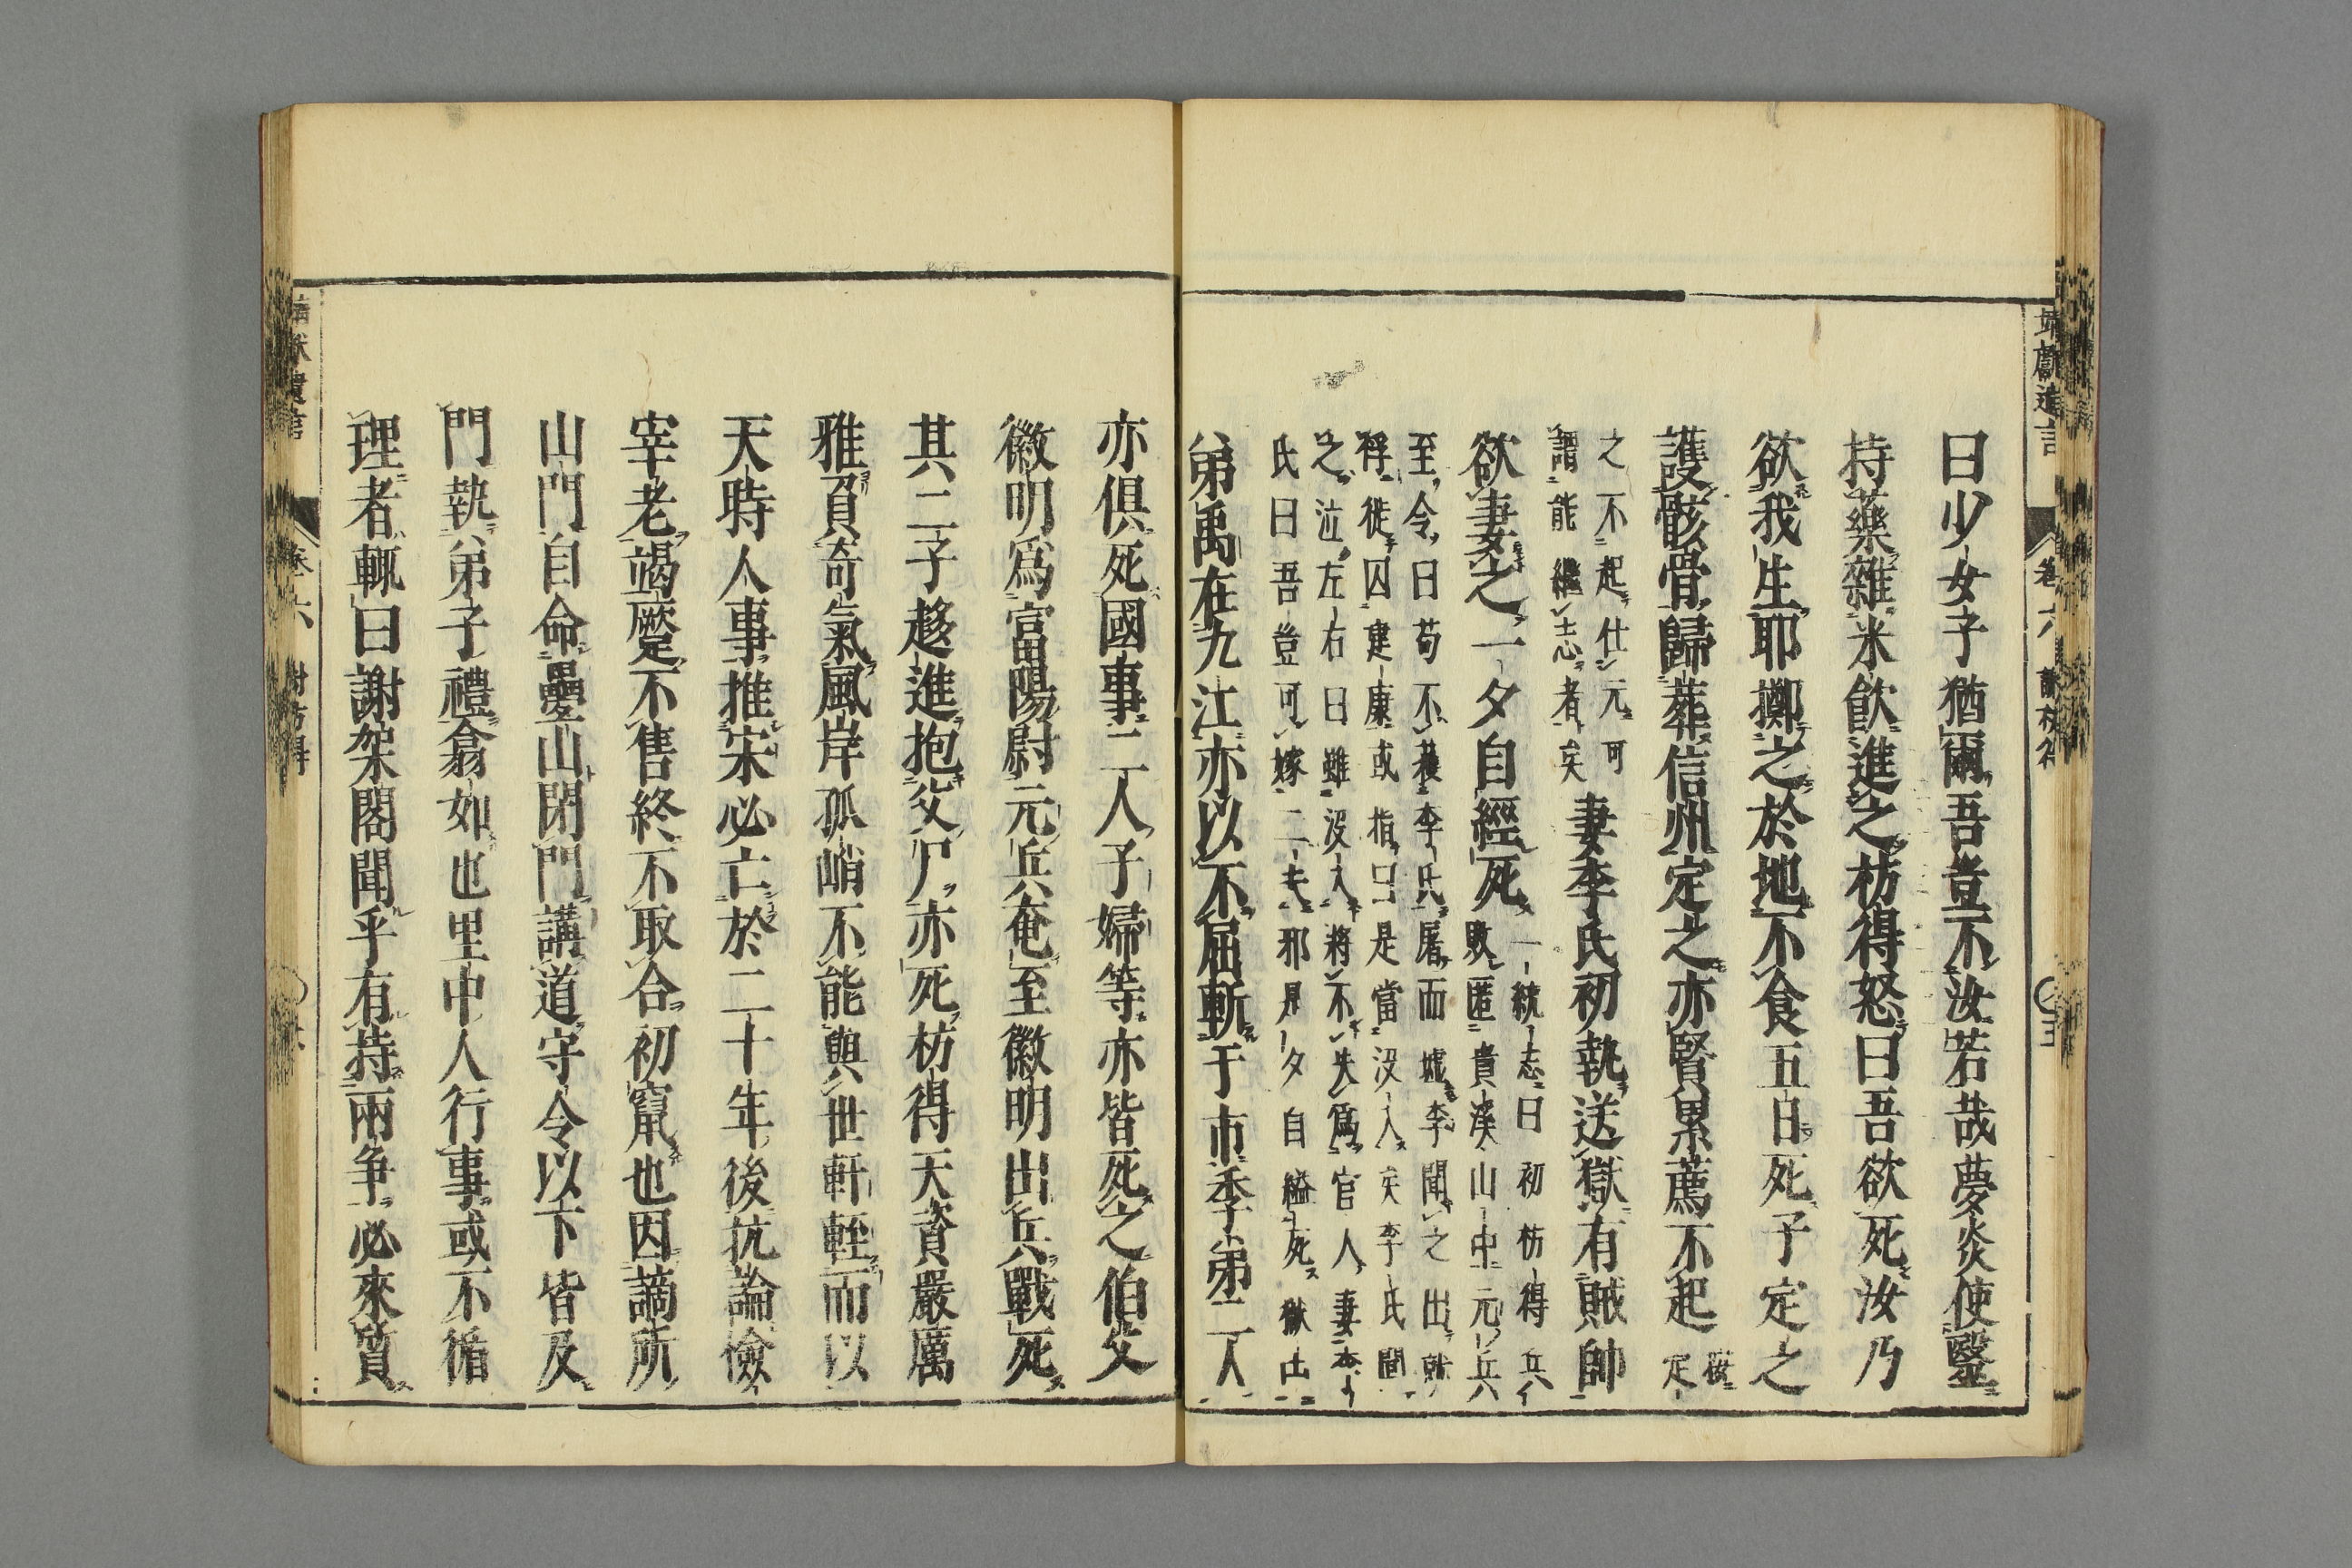 靖獻遺言 卷六 謝枋得 〇五
曰少女子猶爾吾豈不汝若哉夢炎使醫
持藥雜米飮進之枋得怒曰吾欲死汝乃
欲我生耶擲之於地不食五日死子定之
護骸骨歸葬信州定之亦賢累薦不起
按定
之不起仕元可
謂能繼志者矣
妻李氏初執送獄有賊帥
欲妻之一夕自經死
一統志曰初枋得兵
敗匿貴溪山中元兵
至令曰苟不獲李氏屠而墟李聞之出就
俘徙囚建康或指曰是當没入矣李氏聞
之泣左右曰雖没入將不失爲官人妻李
氏曰吾豈可嫁二夫邪是夕自縊死獄中
弟禹在九江亦以不屈斬于市季弟二人
亦俱死國事二人子婦等亦皆死之伯父
徽明爲富陽尉元兵奄至徽明出兵戰死
其二子趍進抱父尸亦死枋得天資嚴厲
雅負奇氣風岸孤峭不能與世軒輊而以
天時人事推宋必亡於二十年後抗論憸
宰老竭蹙不售終不取合初竄也因謫所
山門自命疊山閉門講道守令以下皆及
門執弟子禮翕如也里中人行事或不循
理者輒曰謝架閣聞乎有持兩争必來質
靖獻遺言 卷六 謝枋得